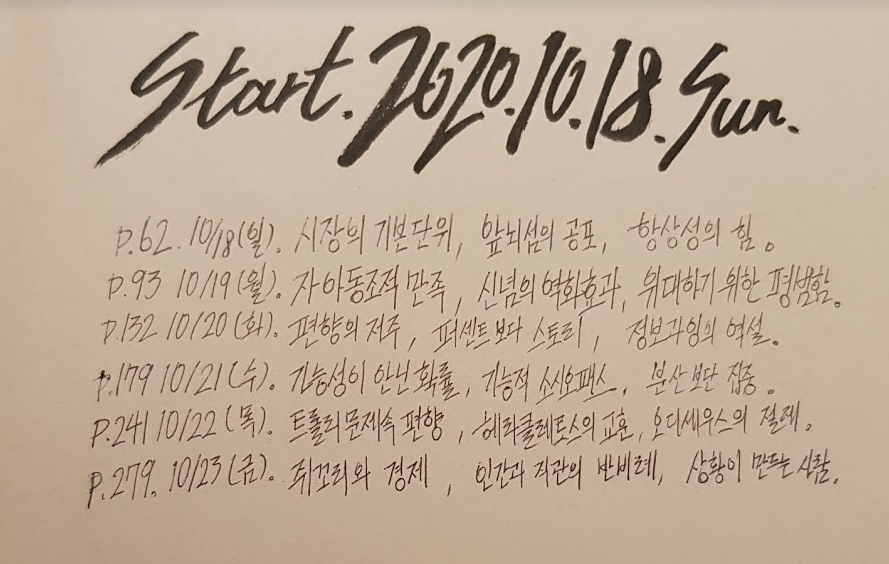 Start. 2020.10.18. Sun.
P.62. 10/18(일). 시장의 기본단위, 앞뇌섬의 공포, 항상성의 힘.
P.93 10/19(월). 자아동조적 만족, 신념의 역화효과, 위대하기 위한 평범함.
P.132 10/20(화). 편향의 저주, 퍼센트보다 스토리, 정보과잉의 역설.
P.179 10/21(수). 가능성이 아닌 확률, 기능적 소시오패스, 분산보단 집중.
P.241 10/22(목). 트롤리문제속 편향, 헤라클레토스의 교훈, 오디세우스의 절제.
P.279. 10/23(금). 쥐꼬리와 경제, 인간과 직관의 반비례, 상황이 만드는 사람.